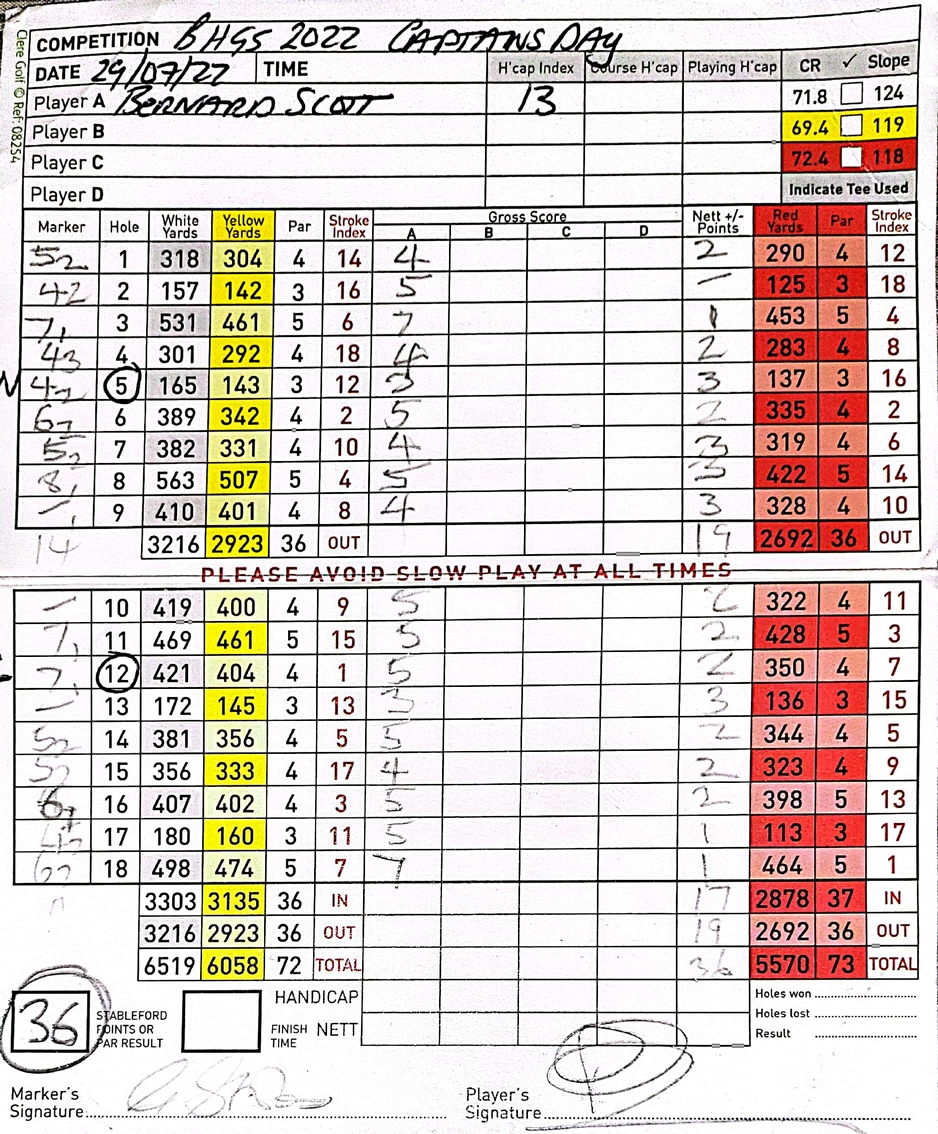 Clere Golf © Ref: 08254
COMPETITION BHGS 2022 CAPTAINS DAY
DATE 29/07/22 TIME H'cap Index Course H'cap Playing H'cap CR ✓ Slope
Player A BERNARD SCOTT 13 71.8 124
Player B 69.4 119
Player C 72.4 118
Player D Indicate Tee Used
Marker Hole White Yards Yellow Yards Par Stroke Index Gross Score A B C D Nett +/- Points Red Yards Par Stroke Index
52 1 318 304 4 14 4 2 290 4 12
42 2 157 142 3 16 5 – 125 3 18
71 3 531 461 5 6 7 1 453 5 4
43 4 301 292 4 18 4 2 283 4 8
42 5 165 143 3 12 3 3 137 3 16
6 6 389 342 4 2 5 2 335 4 2
52 7 382 331 4 10 4 3 319 4 6
81 8 563 507 5 4 5 3 422 5 14
– 9 410 401 4 8 4 3 328 4 10
14 3216 2923 36 OUT 19 2692 36 OUT
PLEASE AVOID SLOW PLAY AT ALL TIMES
– 10 419 400 4 9 5 2 322 4 11
71 11 469 461 5 15 5 2 428 5 3
71 12 421 404 4 1 5 2 350 4 7
– 13 172 145 3 13 3 3 136 3 15
52 14 381 356 4 5 5 2 344 4 5
52 15 356 333 4 17 4 2 323 4 9
6 16 407 402 4 3 5 2 398 5 13
17 180 160 3 11 5 1 113 3 17
18 498 474 5 7 7 1 464 5 1
3303 3135 36 IN 17 2878 37 IN
3216 2923 36 OUT 19 2692 36 OUT
6519 6058 72 TOTAL 36 5570 73 TOTAL
36 STABLEFORD POINTS OR PAR RESULT FINISH TIME HANDICAP
NETT
Holes won
Holes lost
Result
Marker's Signature
Player's Signature